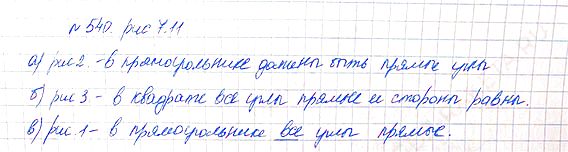 № 540. рис 7.11
а) рис 2. - в прямоугольнике должны быть прямые углы
б) рис 3 - в квадрате все углы прямые и стороны равны.
в) рис. 1 - в прямоугольнике все углы прямые.